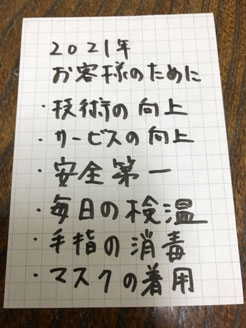 2021年
お客様のために
・技術の向上
・サービスの向上
・安全第一
・毎日の検温
・手指の消毒
・マスクの着用